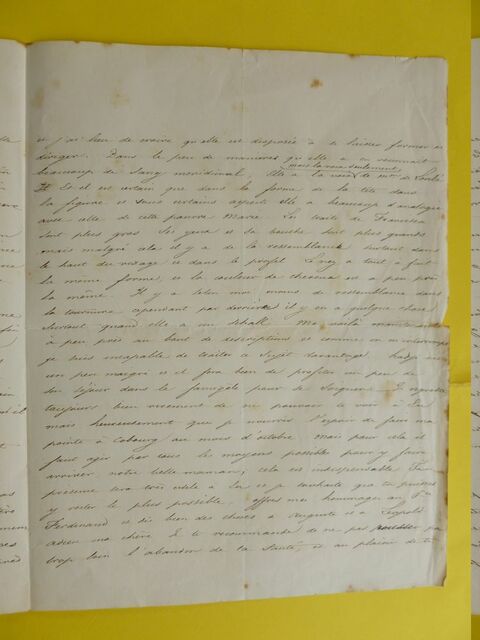 et j'ai lieu de croire qu'elle est disposée à se laisser former et
diriger. Dans le peu de manières qu'elle a on reconnait
mais la voix seulement
beaucoup de sang méridional, Elle a la voix de
Il est certain que dans la forme de la tête dans
la figure et sous certains aspects elle a beaucoup d'analogie
avec celle de cette pauvre Marie. Les traits de Francisca
sont plus gros ses yeux et sa bouche sont plus grands
mais malgré cela il y a de la ressemblance surtout dans
le haut du visage et dans le profil. Le nez a tout à fait
la même forme, et la couleur de cheveux est à peu près
la même. Il y a selon moi moins de ressemblance dans
la tournure cependant par derrière il y en a quelque chose
surtout quand elle a un schall. Me voilà maintenant
à peu près au bout de descriptions et comme on m'interrompt
je suis incapable de traiter ce sujet davantage.
un peu maigri et il fera bien de profiter un peu de
son séjour dans le pour se soigner. Je regrette
toujours bien vivement de ne pouvoir te voir à
mais heureusement que je nourris l'espoir de faire ma
pointe à Cobourg au mois d'octobre mais pour cela il
faut agir par tous les moyens possible pour y faire
arriver notre belle maman; cela est indispensable. Ta
présence sera très utile à et je souhaite que tu puisses
y rester le plus possible. offres mes hommages au Pce
Ferdinand et dis bien des choses à Auguste et à Léopold
adieu ma chère Je te recommande de ne pas pousser
trop loin l'abandon de ta santé, et au plaisir de te